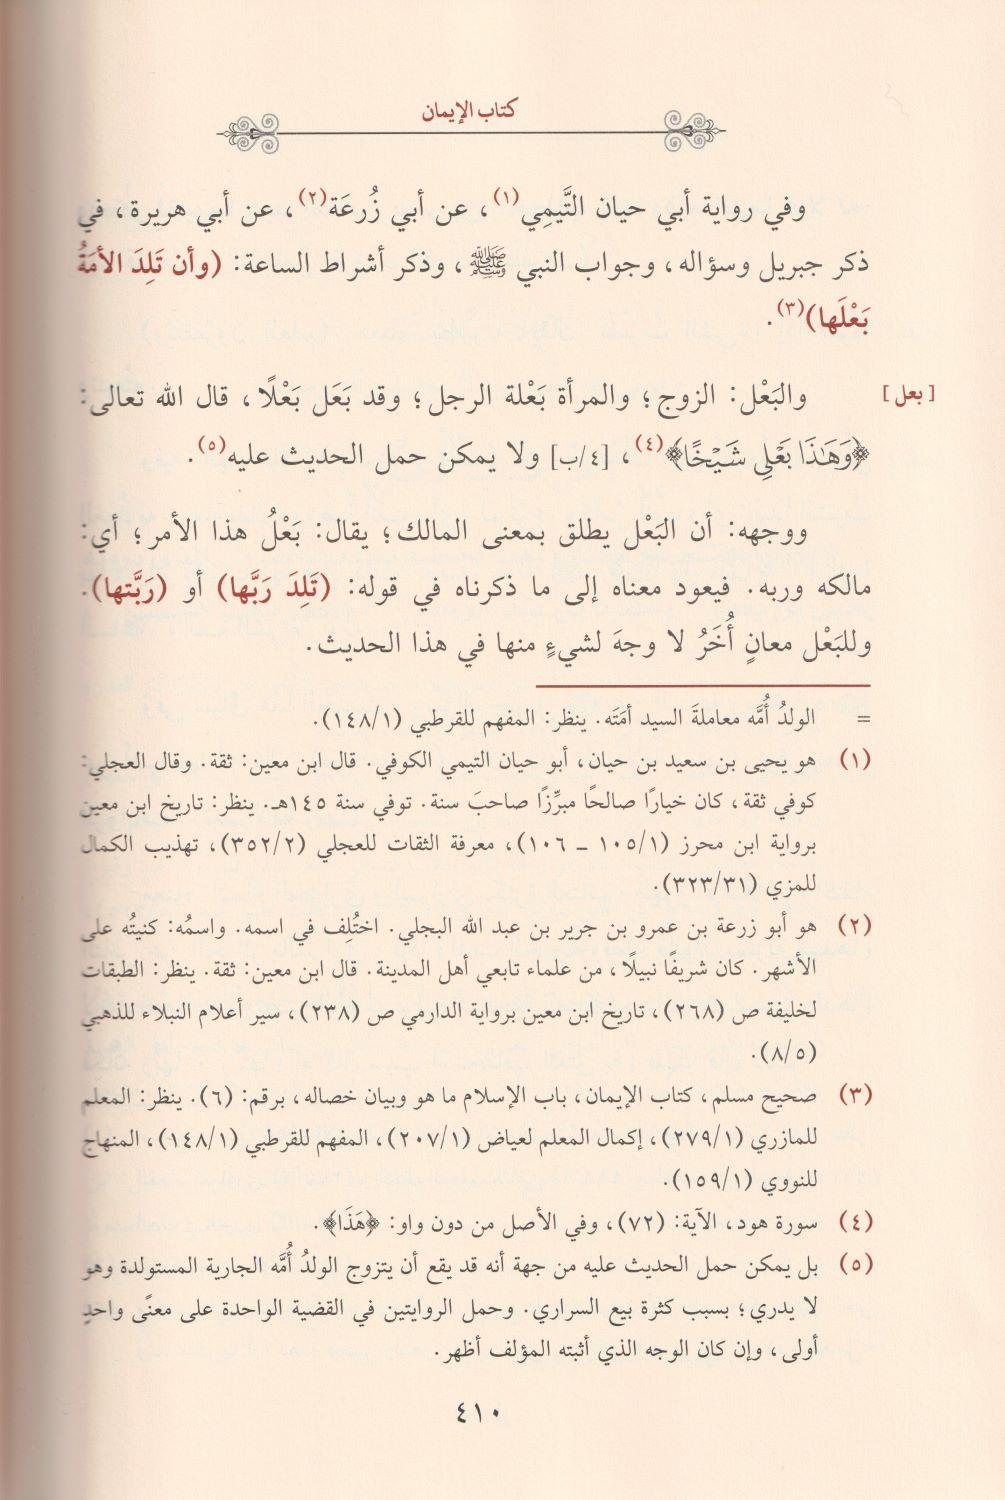 كتاب الإيمان
وفي رواية أبي حيان التَّيمِي(١)، عن أبي زُرعَة(٢)، عن أبي هريرة، في
ذكر جبريل وسؤاله، وجواب النبي ﷺ، وذكر أشراط الساعة: (وأن تَلِدَ الأمَةُ
بَعْلَها)(٣).
[بعل] والبَعْل: الزوج؛ والمرأة بَعْلة الرجل؛ وقد بَعَل بَعْلًا، قال الله تعالى:
﴿وَهَٰذَا بَعْلِى شَيْخًا﴾(٤)، [٤/ب] ولا يمكن حمل الحديث عليه(٥).
ووجهه: أن البَعْل يطلق بمعنى المالك؛ يقال: بَعْلُ هذا الأمر؛ أي:
مالكه وربه. فيعود معناه إلى ما ذكرناه في قوله: (تَلِدَ رَبَّها) أو (رَبَّتها).
وللبَعْل معانٍ أُخَرُ لا وجهَ لشيءٍ منها في هذا الحديث.
= الولدُ أُمَّه معاملةَ السيد أمَتَه. ينظر: المفهم للقرطبي (١٤٨/١).
(١) هو يحيى بن سعيد بن حيان، أبو حيان التيمي الكوفي. قال ابن معين: ثقة. وقال العجلي:
كوفي ثقة، كان خيارًا صالحًا مبرِّزًا صاحبَ سنة. توفي سنة ١٤٥هـ. ينظر: تاريخ ابن معين
برواية ابن محرز (١٠٥/١ ـ ١٠٦)، معرفة الثقات للعجلي (٣٥٢/٢)، تهذيب الكمال
للمزي (٣٢٣/٣١).
(٢) هو أبو زرعة بن عمرو بن جرير بن عبد الله البجلي. اختُلِف في اسمه. واسمُه: كنيتُه على
الأشهر. كان شريفًا نبيلًا، من علماء تابعي أهل المدينة. قال ابن معين: ثقة. ينظر: الطبقات
لخليفة ص (٢٦٨)، تاريخ ابن معين برواية الدارمي ص (٢٣٨)، سير أعلام النبلاء للذهبي
(٨/٥).
(٣) صحيح مسلم، كتاب الإيمان، باب الإسلام ما هو وبيان خصاله، برقم: (٦). ينظر: المعلم
للمازري (٢٧٩/١)، إكمال المعلم لعياض (٢٠٧/١)، المفهم للقرطبي (١٤٨/١)، المنهاج
للنووي (١٥٩/١).
(٤) سورة هود، الآية: (٧٢)، وفي الأصل من دون واو: ﴿هَذَا﴾.
(٥) بل يمكن حمل الحديث عليه من جهة أنه قد يقع أن يتزوج الولدُ أُمَّه الجارية المستولدة وهو
لا يدري؛ بسبب كثرة بيع السراري. وحمل الروايتين في القضية الواحدة على معنًى واحدٍ
أولى، وإن كان الوجه الذي أثبته المؤلف أظهر.
٤١٠